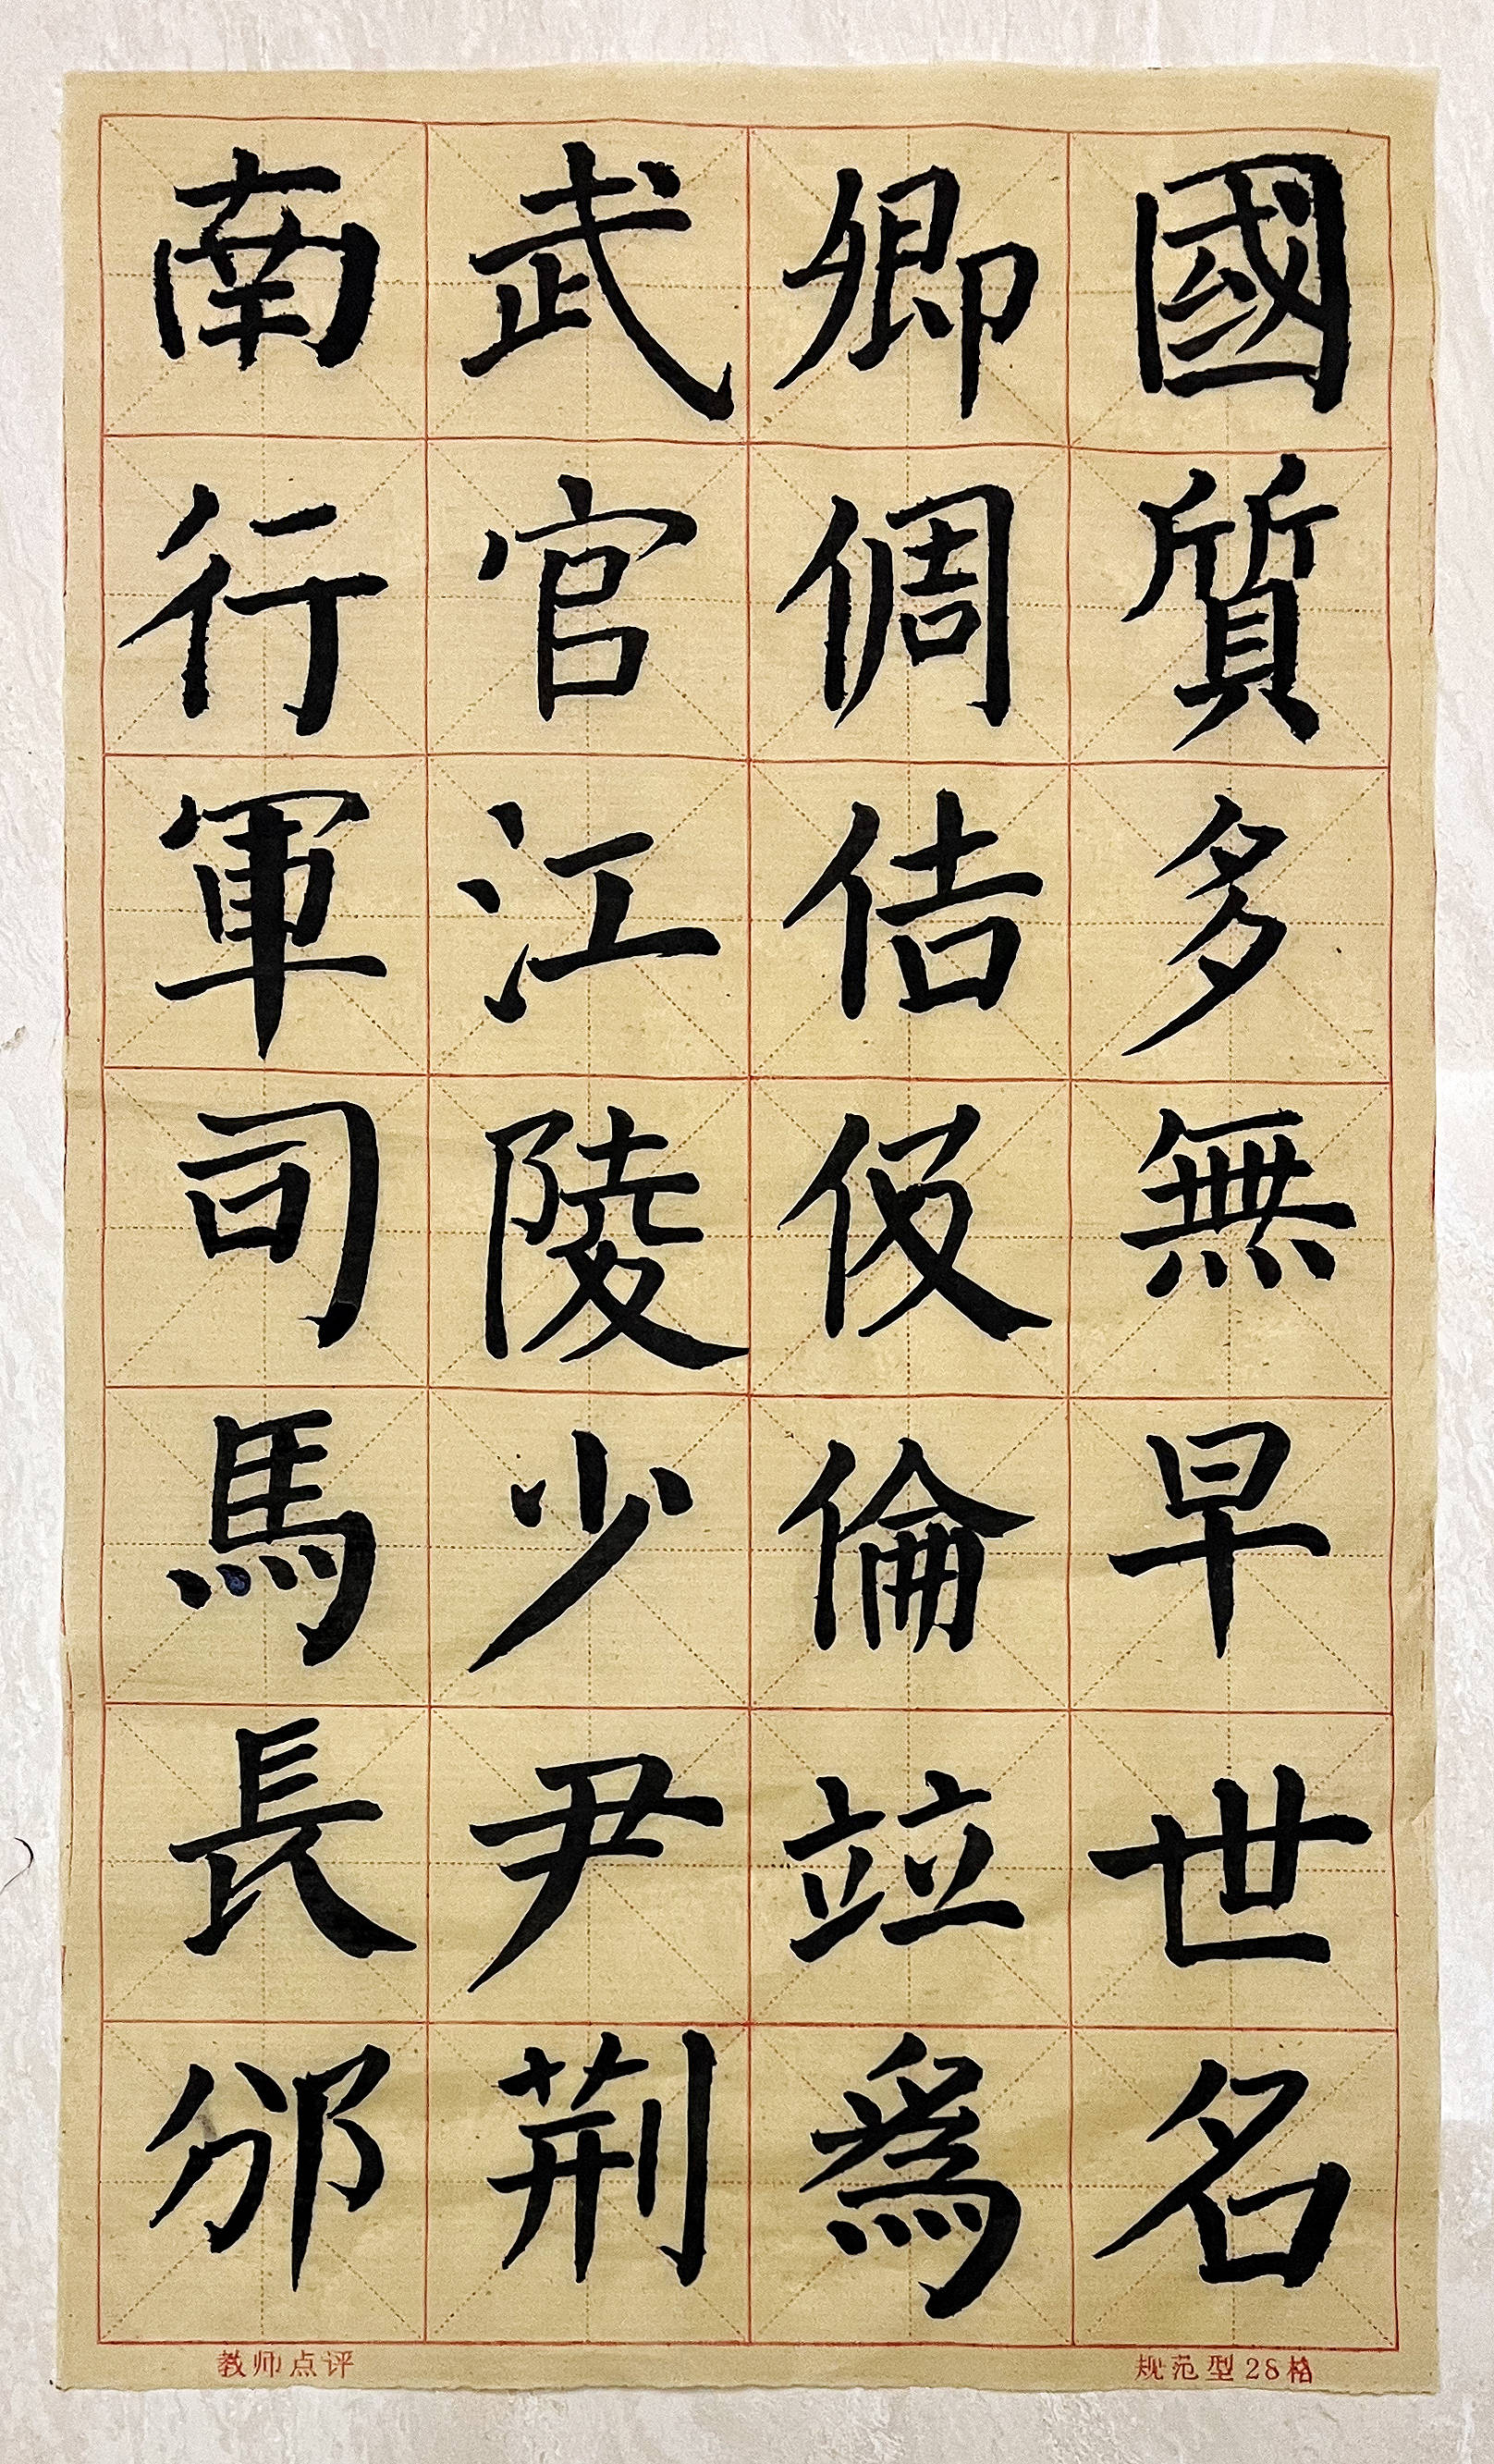 國質多無早世名
卿倜佶伋倫竝爲
武官江陵少尹荆
南行軍司馬長邠
教师点评
规范型28格